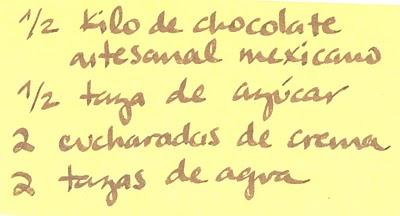 1/2 kilo de chocolate
artesanal mexicano
1/2 taza de azúcar
2 cucharadas de crema
2 tazas de agua